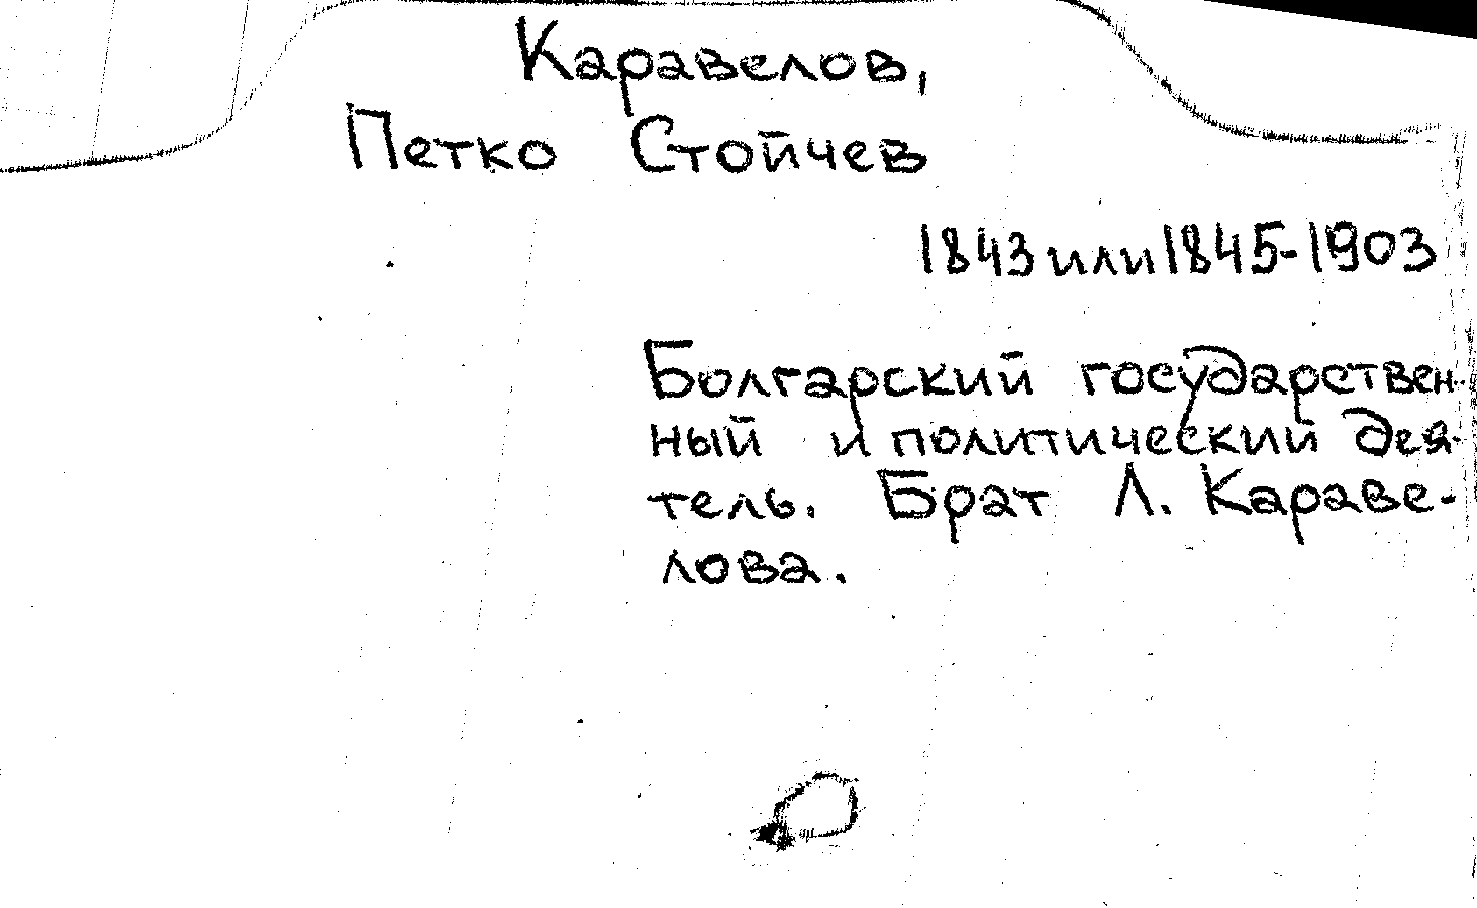 Каравелов,
Петко Стойчев
1843 или 1845-1903
Болгарский государствен-
ный и политический дея-
тель. Брат Л. Караве-
лова.